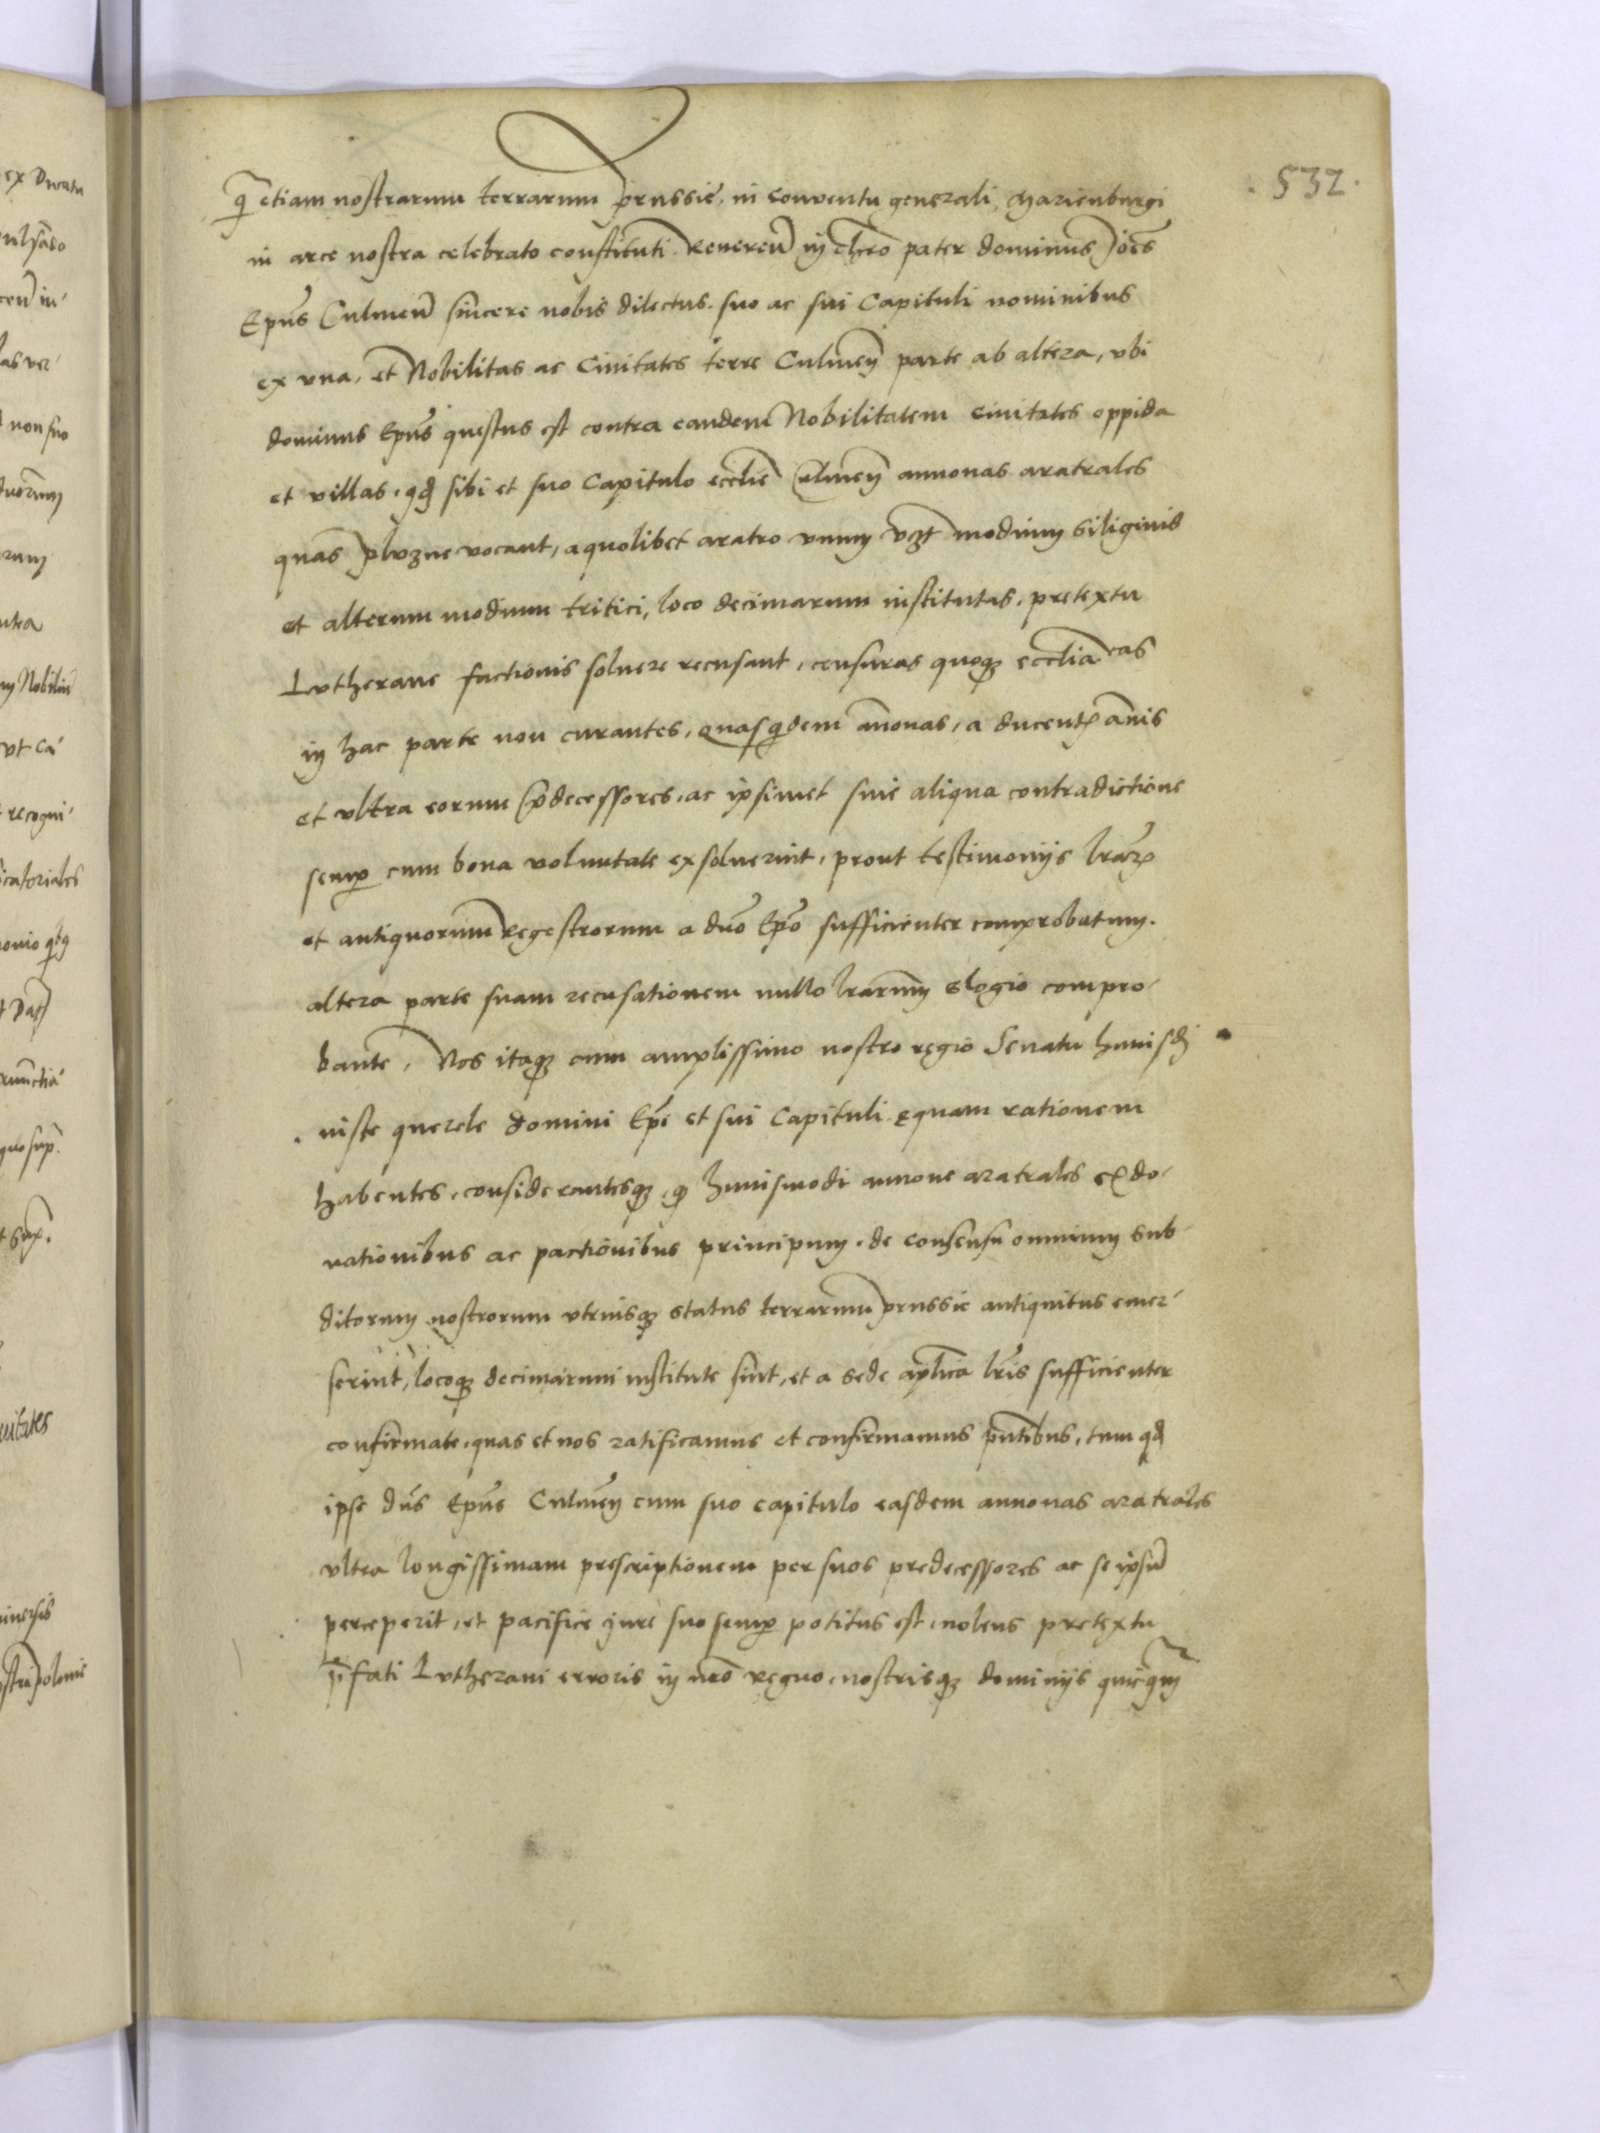 . 532 .
q̄ etiam nostrarum terrarum prussie, in conventu generali, Marienburgi
in arce nostra celebrato constituti Reverēn in chro pater dominus Joēs
Epūs Culmeñ sincere nobis dilectus. suo ac sui Capituli nominibus
ex vna, et Nobilitas ac Civitates terre Culmeñ parte ab altera, vbi
dominus Epūs questus est contra eandem Nobilitatem civitates oppida
et villas, qđ sibi et suo Capitulo ecclie Culmeñ annonas aratrales
quas plvzne vocant, a quolibet aratro vnum vzt modium siliginis
et alterum modium tritici, loco decimarum institutas, pretextu
Lvtherane factionis solvere recusant, censuras quoqz ecclīacas
in hac parte non curantes, quasquidem anōnas, a ducentꝫ anīs
et vltra eorum p̄decessores, ac ipsimet sine aliqua contradictione
semp cum bona voluntate exsolverint, prout testimoniis lrarꝫ
et antiquorum Regestrorum a dno Epo sufficienter comprobatum.
altera parte suam recusationem nullo lrarum elogio compro-
bante, Nos itaqz cum amplissimo nostro regio Senatu huiusđi
iuste querele domini Epi et sui Capituli equam rationem
habentes, considerantesqz, q huiusmodi annone aratrales ex do-
nationibus ac pactionibus principum, de consensu omnium sub-
ditorum nostrorum vtriusqz status terrarum prussie antiquitus emer-
serint, locoqz decimarum institute sint, et a sede aplica lris sufficienter
confirmate, quas et nos ratificamus et confirmamus pntibus, tum qđ
ipse dns Epus Culmeñ cum suo capitulo easdem annonas aratrales
vltra longissimam prescriptionem per suos predecessores ac se ipsum
perceperit, et pacifice jure suo semp potitus est, nolens pretextu
p̄fati Lvtherani erroris in nro regno, nostrisqz dominiis quicq̄m